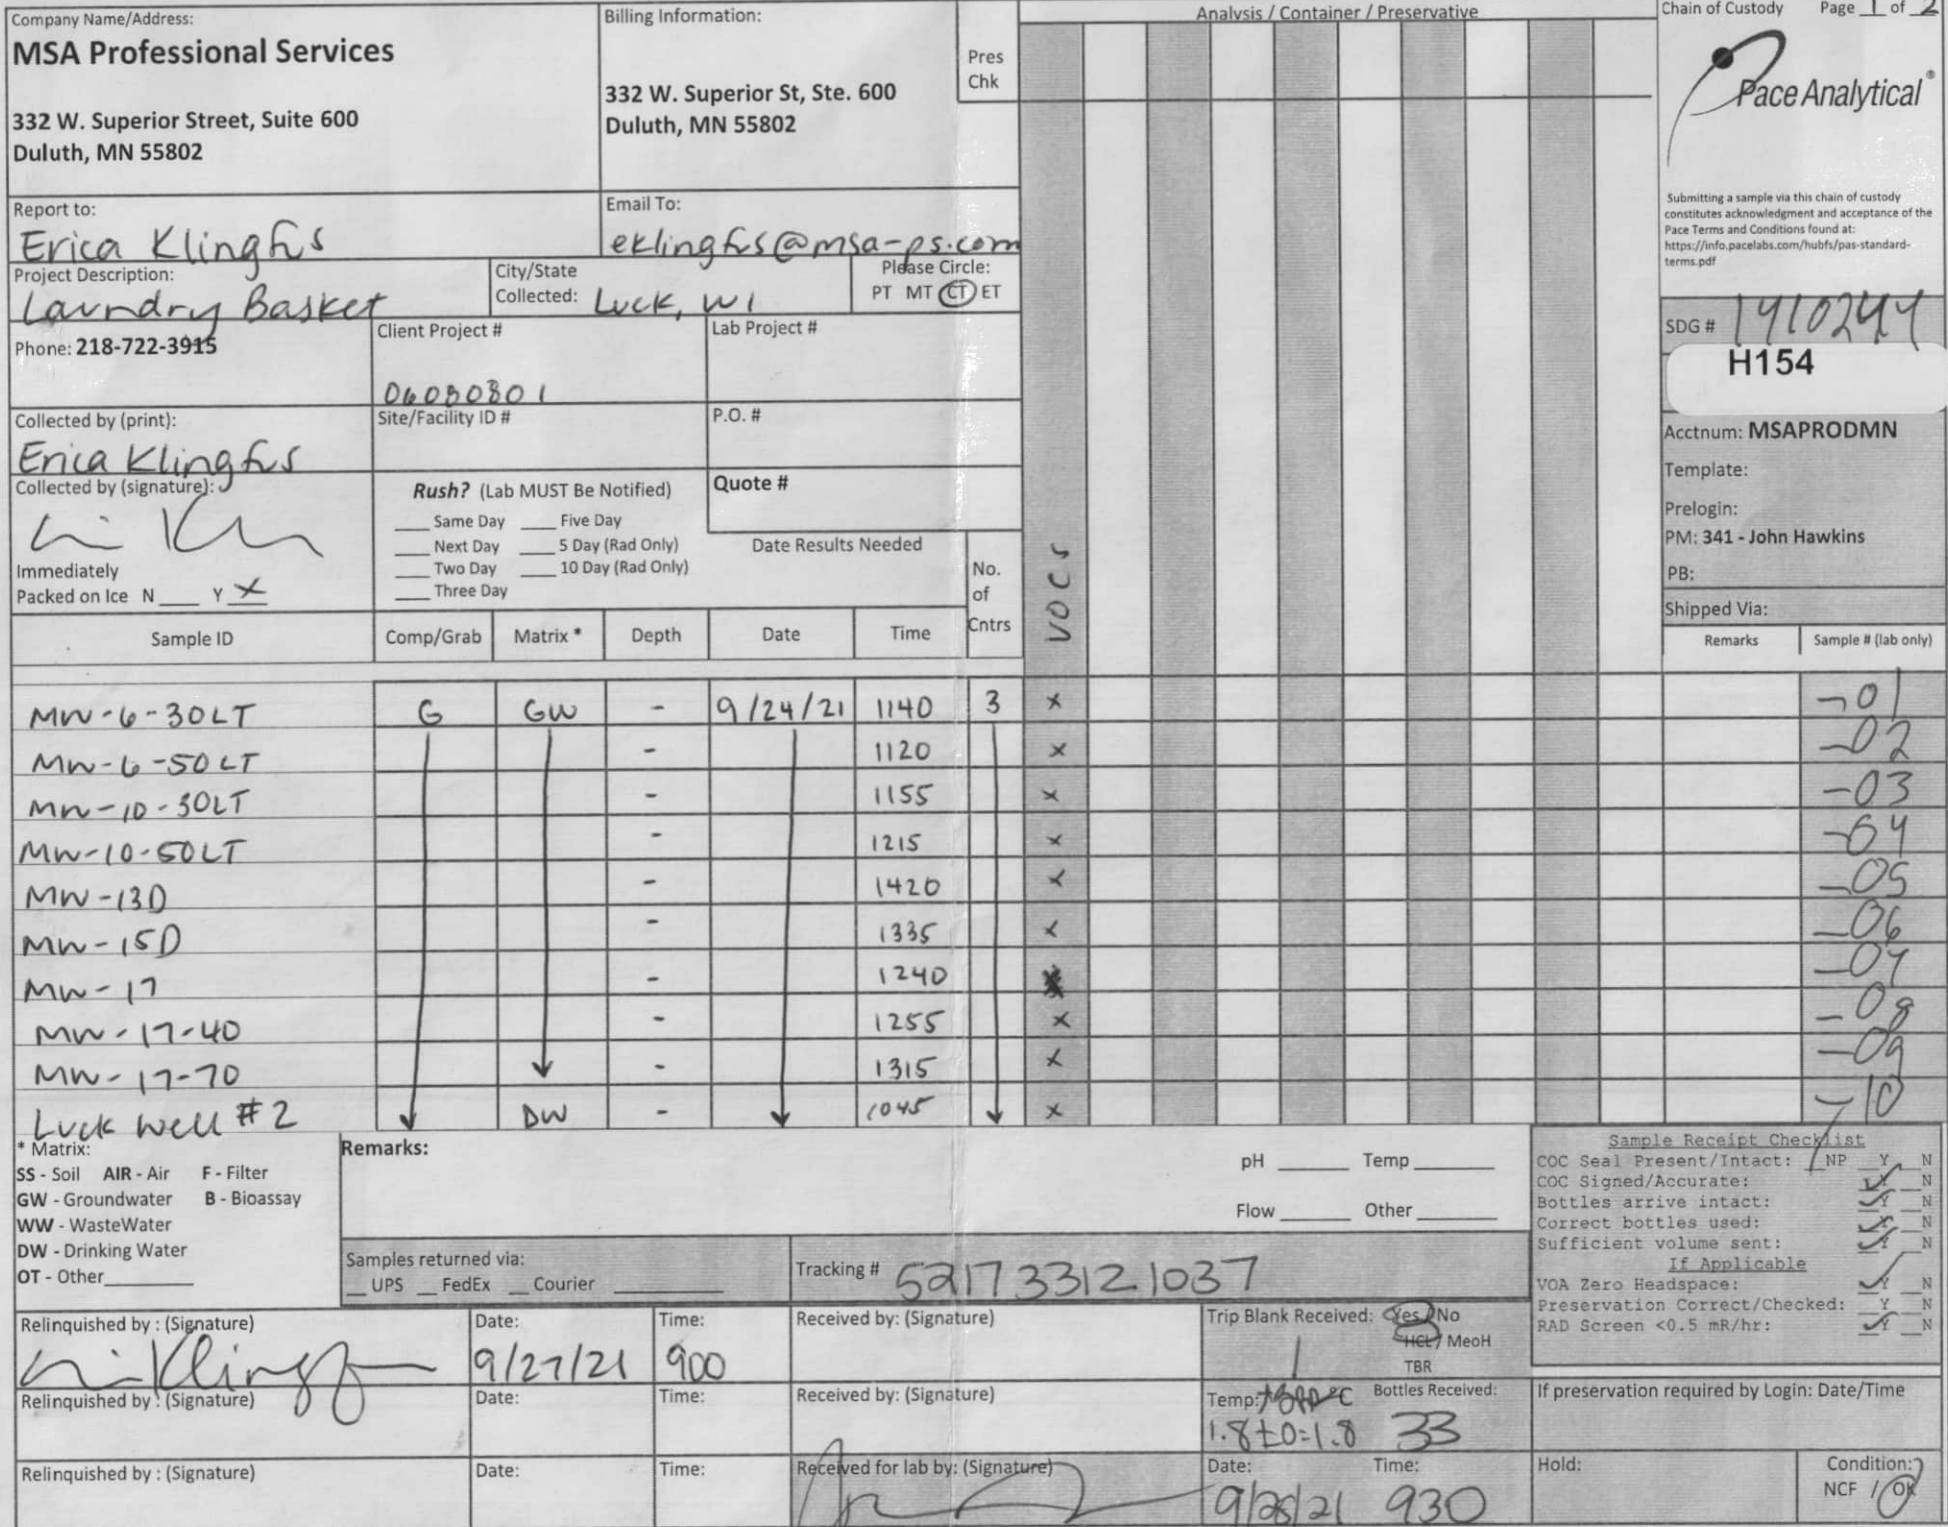 Company Name/Address:
MSA Professional Services
332 W. Superior Street, Suite 600
Duluth, MN 55802
Billing Information:
332 W. Superior St, Ste. 600
Duluth, MN 55802
Pres
Chk
Analysis / Container / Preservative
Chain of Custody Page 1 of 2
Pace Analytical®
Submitting a sample via this chain of custody
constitutes acknowledgment and acceptance of the
Pace Terms and Conditions found at:
https://info.pacelabs.com/hubfs/pas-standard-
terms.pdf
Report to:
Erica Klingfus
Email To:
eklingfus@msa-ps.com
Project Description:
Laundry Basket
City/State
Collected: Luck, WI
Please Circle:
PT MT CT ET
Phone: 218-722-3915
Client Project #
06080801
Lab Project #
SDG # 1410244
H154
Collected by (print):
Erica Klingfus
Site/Facility ID #
P.O. #
Acctnum: MSAPRODMN
Template:
Prelogin:
PM: 341 - John Hawkins
PB:
Shipped Via:
Collected by (signature):
Rush? (Lab MUST Be Notified)
___ Same Day ___ Five Day
___ Next Day ___ 5 Day (Rad Only)
___ Two Day ___ 10 Day (Rad Only)
___ Three Day
Quote #
Date Results Needed
Immediately
Packed on Ice N ___ Y X
No.
of
Cntrs
VOCs
Sample ID Comp/Grab Matrix * Depth Date Time Remarks Sample # (lab only)
MW-6-30LT G GW - 9/24/21 1140 3 x -01
MW-6-50LT - 1120 x -02
MW-10-30LT - 1155 x -03
MW-10-50LT - 1215 x -04
MW-13D - 1420 x -05
MW-15D - 1335 x -06
MW-17 - 1240 x -07
MW-17-40 - 1255 x -08
MW-17-70 - 1315 x -09
Luck Well #2 DW - 1045 x -10
* Matrix:
SS - Soil AIR - Air F - Filter
GW - Groundwater B - Bioassay
WW - WasteWater
DW - Drinking Water
OT - Other
Remarks:
pH ___ Temp ___
Flow ___ Other ___
Samples returned via:
__ UPS __ FedEx __ Courier
Tracking # 521733121037
Sample Receipt Checklist
COC Seal Present/Intact: NP Y N
COC Signed/Accurate: Y N
Bottles arrive intact: Y N
Correct bottles used: Y N
Sufficient volume sent: Y N
If Applicable
VOA Zero Headspace: Y N
Preservation Correct/Checked: Y N
RAD Screen <0.5 mR/hr: Y N
Relinquished by : (Signature)
Date:
9/27/21
Time:
900
Received by: (Signature)
Trip Blank Received: Yes / No
1 HCL / MeoH
TBR
Relinquished by : (Signature)
Date:
Time:
Received by: (Signature)
Temp: °C
1.8±0=1.8
Bottles Received:
33
If preservation required by Login: Date/Time
Relinquished by : (Signature)
Date:
Time:
Received for lab by: (Signature)
Date:
9/28/21
Time:
930
Hold:
Condition:
NCF / OK